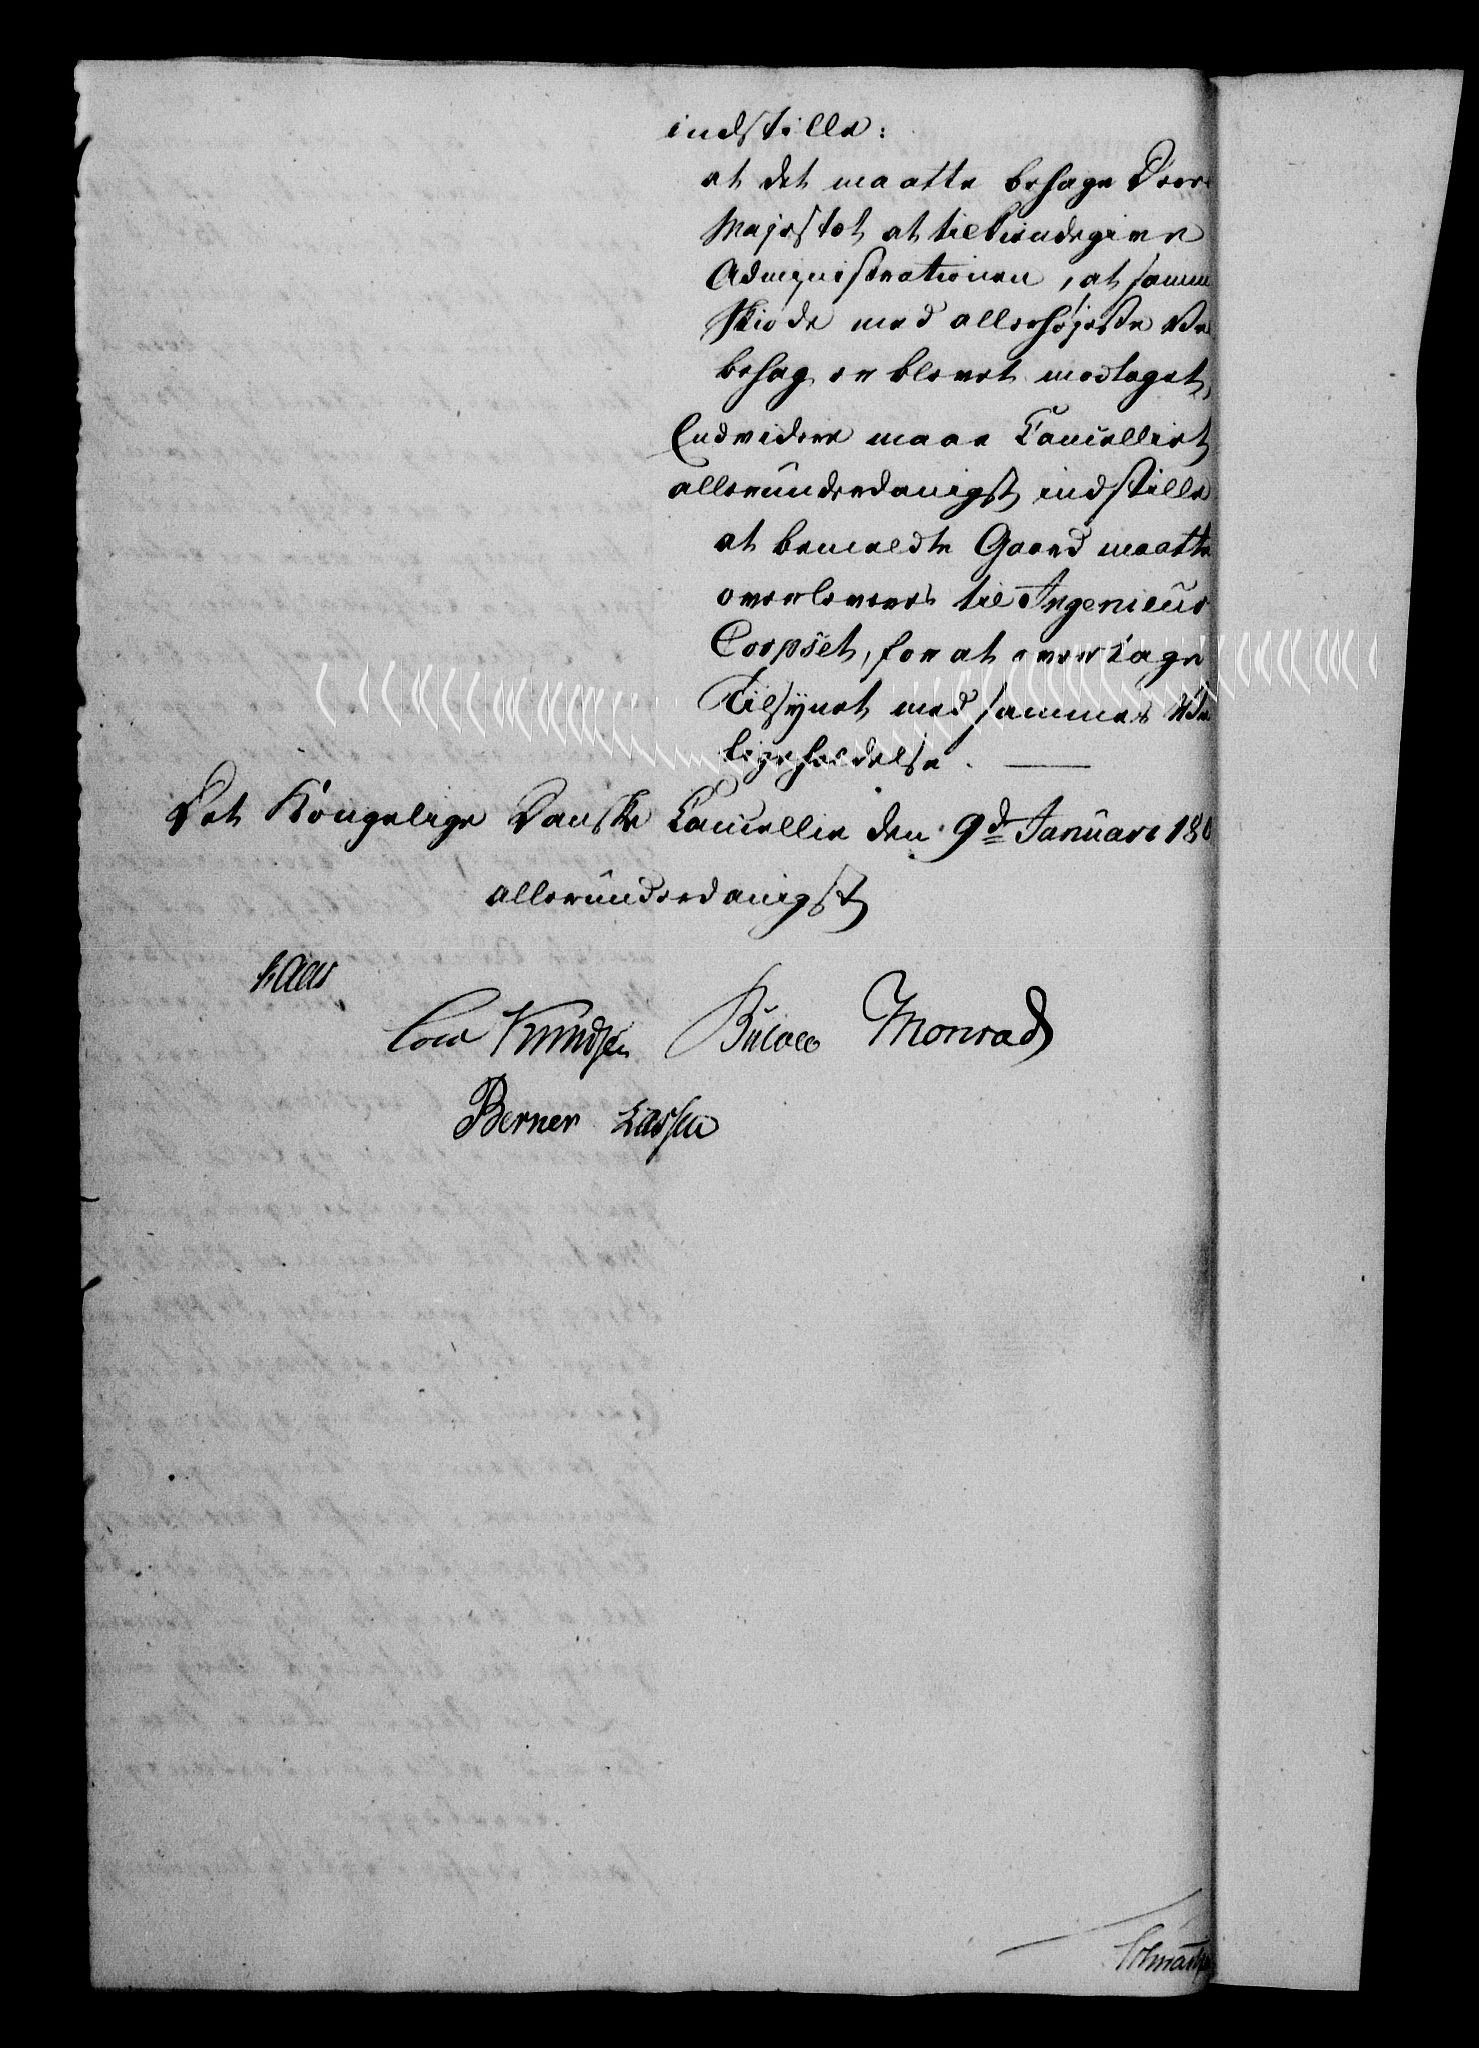 indstille:
at det maatte behage Deres
Majestæt at tilkiendegive
Administrationen, at samme
Skiøde med allerhøjeste Vel
behag er blevet modtaget,
Endvidere maae Cancelliet
allerunderdanigst indstille
at bemeldte Gaard maatte
overleveres til Ingenieur
Corpset, for at overtage
Tilsynet med sammes Ved
ligeholdelse. —
Det Kongelige Danske Cancellie den 9d Januari 180
allerunderdanigst
Kaas
Cold Knudsen Bülow Monrad
Berner Lassen